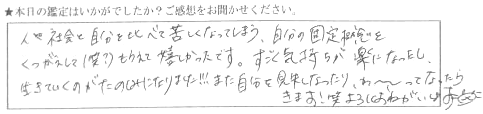 ★本日の鑑定はいかがでしたか？ご感想をお聞かせください。
人や社会と自分を比べて苦しくなってしまう、自分の固定概念を
くつがえして(笑)もらえて嬉しかったです。すごく気持ちが楽になったし、
生きていくのがたのしみになりました!!!また自分を見失しなったり、わ〜ってなったら
きます！笑 よろしくおねがいします